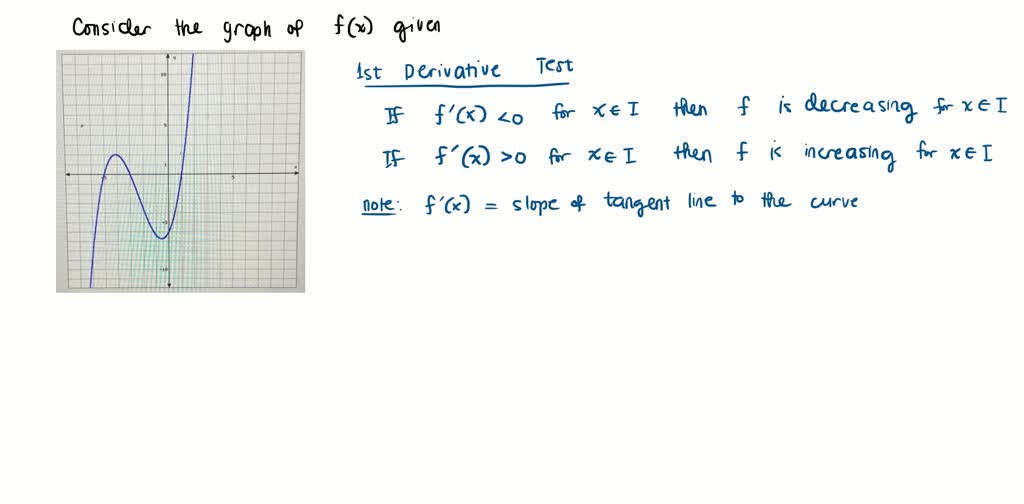 Consider the graph of f(x) given
1st Derivative Test
If f'(x) <0 for x∈I then f is decreasing for x∈I
If f'(x) >0 for x∈I then f is increasing for x∈I
note: f'(x) = slope of tangent line to the curve